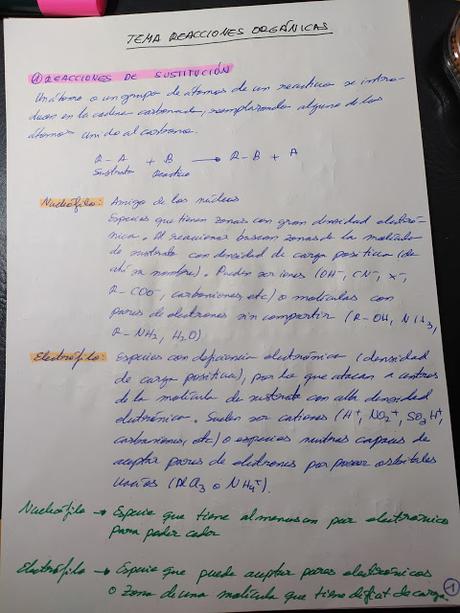 TEMA REACCIONES ORGÁNICAS
① REACCIONES DE SUSTITUCIÓN
Un átomo o un grupo de átomos de un reactivo se intro-
ducen en la cadena carbonada, reemplazando alguno de los
átomos unido al carbono.
R-A + B → R-B + A
Sustrato Reactivo
Nucleófilo: Amigo de los núcleos
Especies que tienen zonas con gran densidad electró-
nica. Al reaccionar buscan zonas de la molécula
de sustrato con densidad de carga positiva (de
ahí su nombre). Pueden ser iones (OH⁻, CN⁻, X⁻,
R-COO⁻, carbaniones, etc) o moléculas con
pares de electrones sin compartir (R-OH, NH3,
R-NH2, H2O)
Electrófilo: Especies con deficiencia electrónica (densidad
de carga positiva), por lo que atacan a centros
de la molécula de sustrato con alta densidad
electrónica. Suelen ser cationes (H⁺, NO2⁺, SO3H⁺,
etc) o especies neutras capaces de
aceptar pares de electrones por poseer orbitales
vacíos (AlCl3 o NH4⁺).
Nucleófilo → Especie que tiene al menos un par electrónico
para poder ceder
Electrófilo → Especie que puede aceptar pares electrónicos
o zona de una molécula que tiene déficit de carga
①